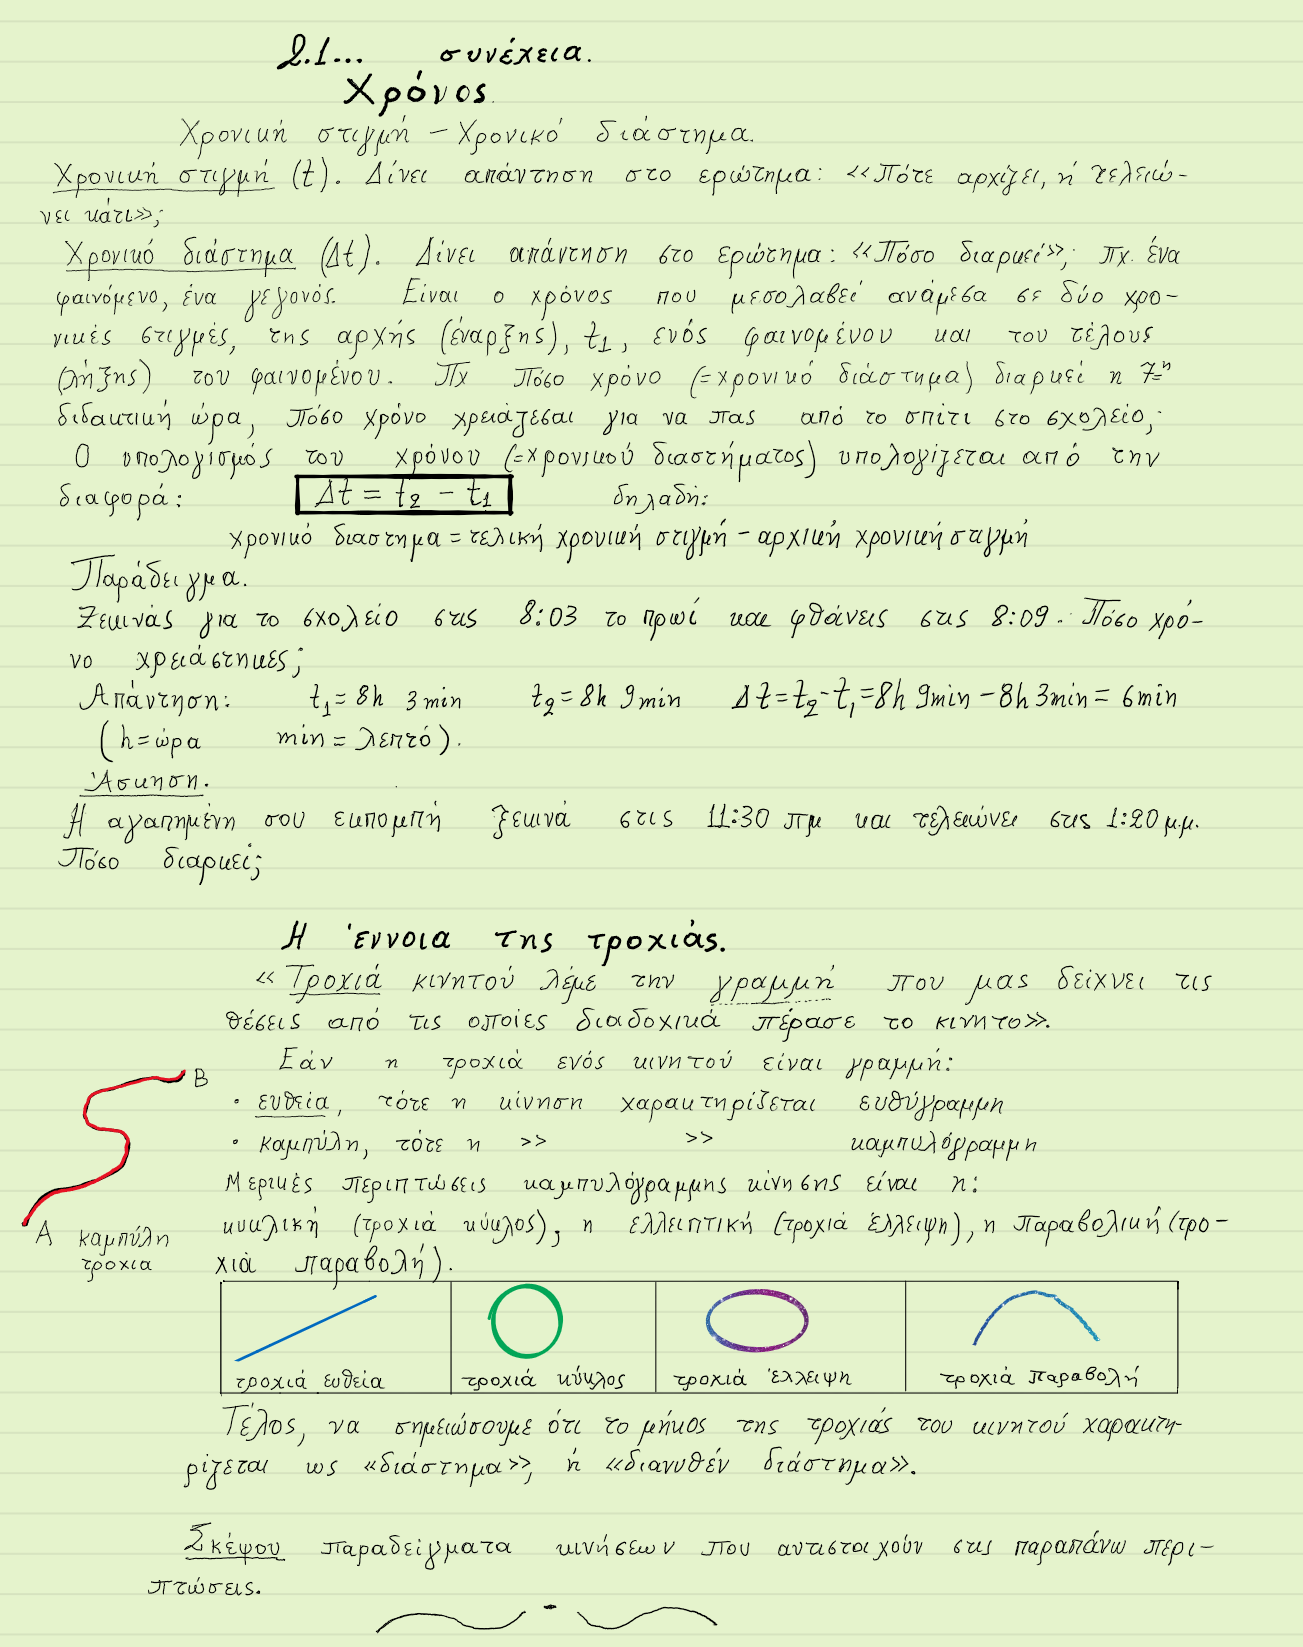 2.1... συνέχεια.
Χρόνος.
Χρονική στιγμή – Χρονικό διάστημα.
Χρονική στιγμή (t). Δίνει απάντηση στο ερώτημα: «Πότε αρχίζει, ή τελειώ-
νει κάτι»;
Χρονικό διάστημα (Δt). Δίνει απάντηση στο ερώτημα: «Πόσο διαρκεί»; πχ. ένα
φαινόμενο, ένα γεγονός. Είναι ο χρόνος που μεσολαβεί ανάμεσα σε δύο χρο-
νικές στιγμές, της αρχής (έναρξης), t₁, ενός φαινομένου και του τέλους
(λήξης) του φαινομένου. Πχ Πόσο χρόνο (=χρονικό διάστημα) διαρκεί η 7η
διδακτική ώρα, πόσο χρόνο χρειάζεσαι για να πας από το σπίτι στο σχολείο;
Ο υπολογισμός του χρόνου (=χρονικού διαστήματος) υπολογίζεται από την
διαφορά: Δt = t₂ - t₁ δηλαδή:
χρονικό διαστημα = τελική χρονική στιγμή - αρχική χρονική στιγμή
Παράδειγμα.
Ξεκινάς για το σχολείο στις 8:03 το πρωί και φθάνεις στις 8:09. Πόσο χρό-
νο χρειάστηκες;
Απάντηση: t₁ = 8h 3min t₂ = 8h 9min Δt = t₂-t₁ = 8h 9min - 8h 3min = 6min
(h = ώρα min = λεπτό).
Άσκηση.
Η αγαπημένη σου εκπομπή ξεκινά στις 11:30 πμ και τελειώνει στις 1:20 μ.μ.
Πόσο διαρκεί;
Η έννοια της τροχιάς.
«Τροχιά κινητού λέμε την γραμμή που μας δείχνει τις
θέσεις από τις οποίες διαδοχικά πέρασε το κινητο».
Εάν η τροχιά ενός κινητού είναι γραμμή:
B
• ευθεία, τότε η κίνηση χαρακτηρίζεται ευθύγραμμη
• καμπύλη, τότε η >> >> καμπυλόγραμμη
Μερικές περιπτώσεις καμπυλόγραμμης κίνησης είναι η:
κυκλική (τροχιά κύκλος), η ελλειπτική (τροχιά έλλειψη), η παραβολική (τρο-
χιά παραβολή).
A καμπύλη
τροχια
τροχιά ευθεία τροχιά κύκλος τροχιά έλλειψη τροχιά παραβολή
Τέλος, να σημειώσουμε ότι το μήκος της τροχιάς του κινητού χαρακτη-
ρίζεται ως «διάστημα», ή «διανυθέν διάστημα».
Σκέψου παραδείγματα κινήσεων που αντιστοιχούν στις παραπάνω περι-
πτώσεις.